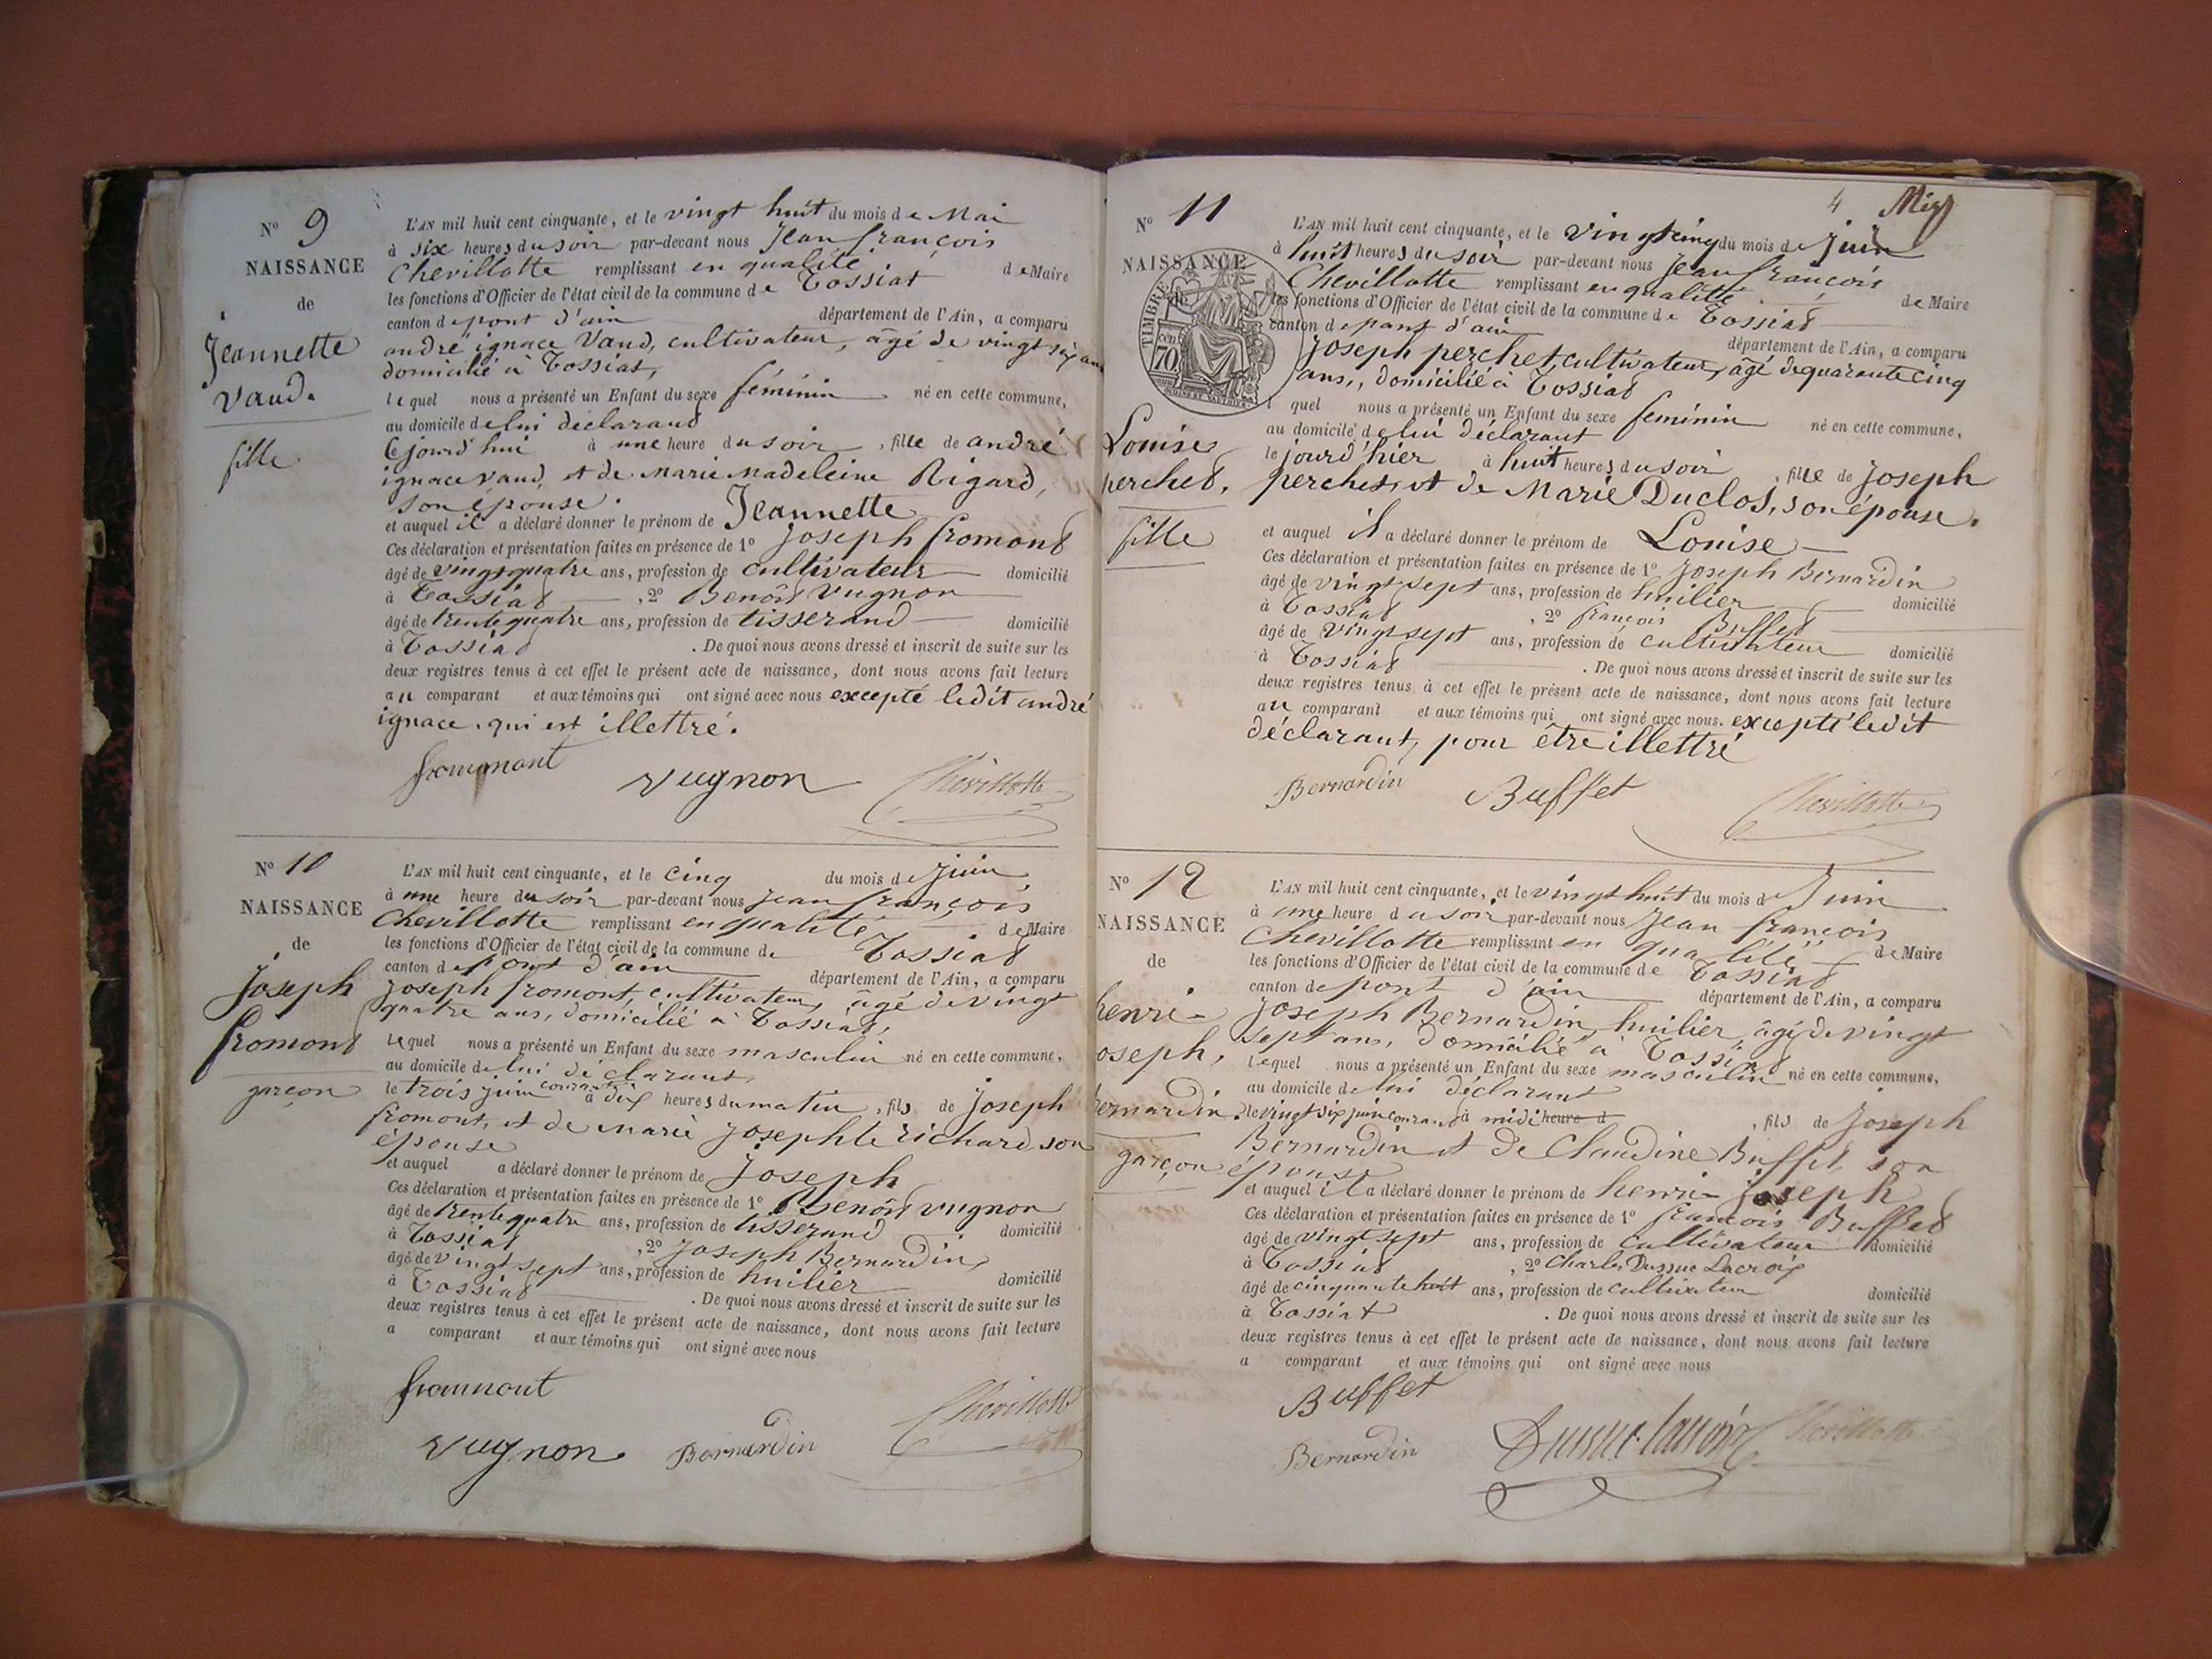 N° 9
NAISSANCE
de
Jeannette
Vaud.
fille
L'AN mil huit cent cinquante, et le vingt huit du mois de Mai
à six heures du soir par-devant nous Jean françois
Chevillotte remplissant en qualité de Maire
les fonctions d'Officier de l'état civil de la commune de Tossiat
canton de pont d'ain département de l'Ain, a comparu
andré ignace Vaud, cultivateur, âgé de vingt six ans
domicilié à Tossiat,
lequel nous a présenté un Enfant du sexe féminin né en cette commune,
au domicile de lui déclarant
Cejourd'hui à une heure du soir, fille de andré
ignace vaud, et de marie madeleine Rigard,
son épouse.
et auquel il a déclaré donner le prénom de Jeannette
Ces déclaration et présentation faites en présence de 1° Joseph fromont
âgé de vingt quatre ans, profession de cultivateur domicilié
à Tossiat, 2° Benoît Vugnon
âgé de trente quatre ans, profession de tisserand domicilié
à Tossiat. De quoi nous avons dressé et inscrit de suite sur les
deux registres tenus à cet effet le présent acte de naissance, dont nous avons fait lecture
au comparant et aux témoins qui ont signé avec nous excepté ledit andré
ignace. qui est illettré.
Vugnon Chevillotte
N° 10
NAISSANCE
de
Joseph
fromont
garçon
L'AN mil huit cent cinquante, et le cinq du mois de juin
à une heure du soir par-devant nous jean françois
Chevillotte remplissant en qualité de Maire
les fonctions d'Officier de l'état civil de la commune de Tossiat
canton de pont d'ain département de l'Ain, a comparu
joseph fromont, cultivateur, âgé de vingt
quatre ans, domicilié à Tossiat,
lequel nous a présenté un Enfant du sexe masculin né en cette commune,
au domicile de lui déclarant,
le trois juin courant à dix heures du matin, fils de joseph
fromont, et de marie josephte richard, son
épouse
et auquel a déclaré donner le prénom de joseph
Ces déclaration et présentation faites en présence de 1° Benoît vugnon
âgé de trente quatre ans, profession de tisserand domicilié
à Tossiat, 2° Joseph Bernardin,
âgé de vingt sept ans, profession de huilier domicilié
à Tossiat. De quoi nous avons dressé et inscrit de suite sur les
deux registres tenus à cet effet le présent acte de naissance, dont nous avons fait lecture
a comparant et aux témoins qui ont signé avec nous
fromont
Vugnon Bernardin Chevillotte
4
N° 11
NAISSANCE
TIMBRE
70
Louise
perchet.
fille
L'AN mil huit cent cinquante, et le vingt cinq du mois de juin
à huit heures du soir par-devant nous Jean françois
Chevillotte remplissant en qualité de Maire
les fonctions d'Officier de l'état civil de la commune de Tossiat
canton de pont d'ain département de l'Ain, a comparu
Joseph perchet, cultivateur, âgé de quarante cinq
ans, domicilié à Tossiat
l quel nous a présenté un Enfant du sexe feminin né en cette commune,
au domicile de lui déclarant
le jourd'hier à huit heures du soir, fille de joseph
perchet, et de Marie Duclos, son épouse.
et auquel il a déclaré donner le prénom de Louise
Ces déclaration et présentation faites en présence de 1° Joseph Bernardin
âgé de vingt sept ans, profession de huilier domicilié
à Tossiat, 2° françois Buffet
âgé de vingt sept ans, profession de cultivateur domicilié
à Tossiat. De quoi nous avons dressé et inscrit de suite sur les
deux registres tenus à cet effet le présent acte de naissance, dont nous avons fait lecture
au comparant et aux témoins qui ont signé avec nous. excepté ledit
déclarant, pour être illettré
Bernardin Buffet Chevillotte
N° 12
NAISSANCE
de
henri-
oseph,
ernardin.
garçon
L'AN mil huit cent cinquante, et le vingt huit du mois de Juin
à une heure du soir par-devant nous Jean françois
Chevillotte remplissant en qualité de Maire
les fonctions d'Officier de l'état civil de la commune de Tossiat
canton de pont d'ain département de l'Ain, a comparu
joseph Bernardin, huilier, âgé de vingt
sept ans, domicilié à Tossiat
lequel nous a présenté un Enfant du sexe masculin né en cette commune,
au domicile de lui déclarant
le vingt six juin courant à midi heure d, fils de joseph
Bernardin et de Claudine Buffet, son
épouse
et auquel il a déclaré donner le prénom de henri-joseph
Ces déclaration et présentation faites en présence de 1° françois Buffet
âgé de vingt sept ans, profession de cultivateur domicilié
à Tossiat, 2° Charles Dussuc Lacroix
âgé de cinquante huit ans, profession de cultivateur domicilié
à Tossiat. De quoi nous avons dressé et inscrit de suite sur les
deux registres tenus à cet effet le présent acte de naissance, dont nous avons fait lecture
a comparant et aux témoins qui ont signé avec nous
Buffet
Bernardin Dussuc-lacroix Chevillotte